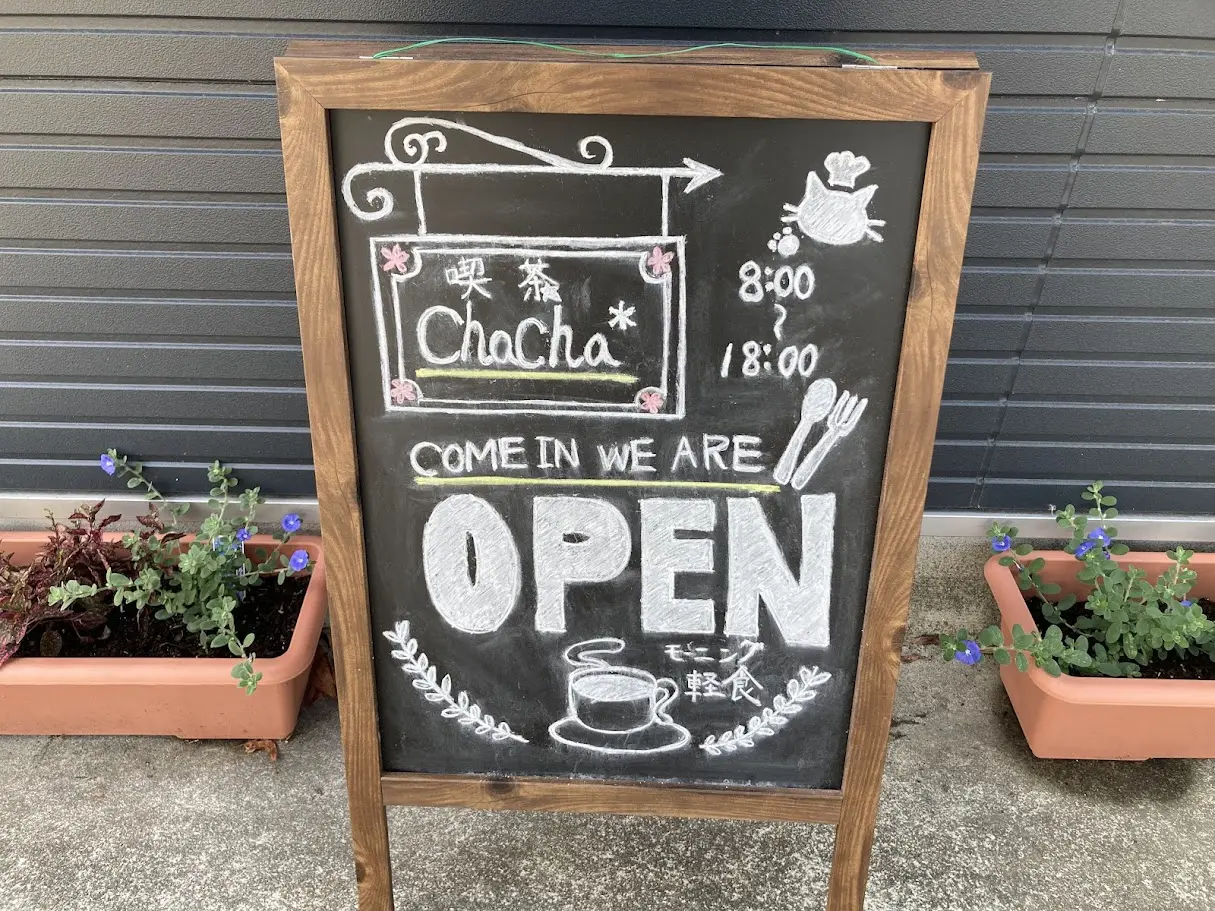 喫茶
ChaCha*
8:00
〜
18:00
COME IN WE ARE
OPEN
モーニング
軽食